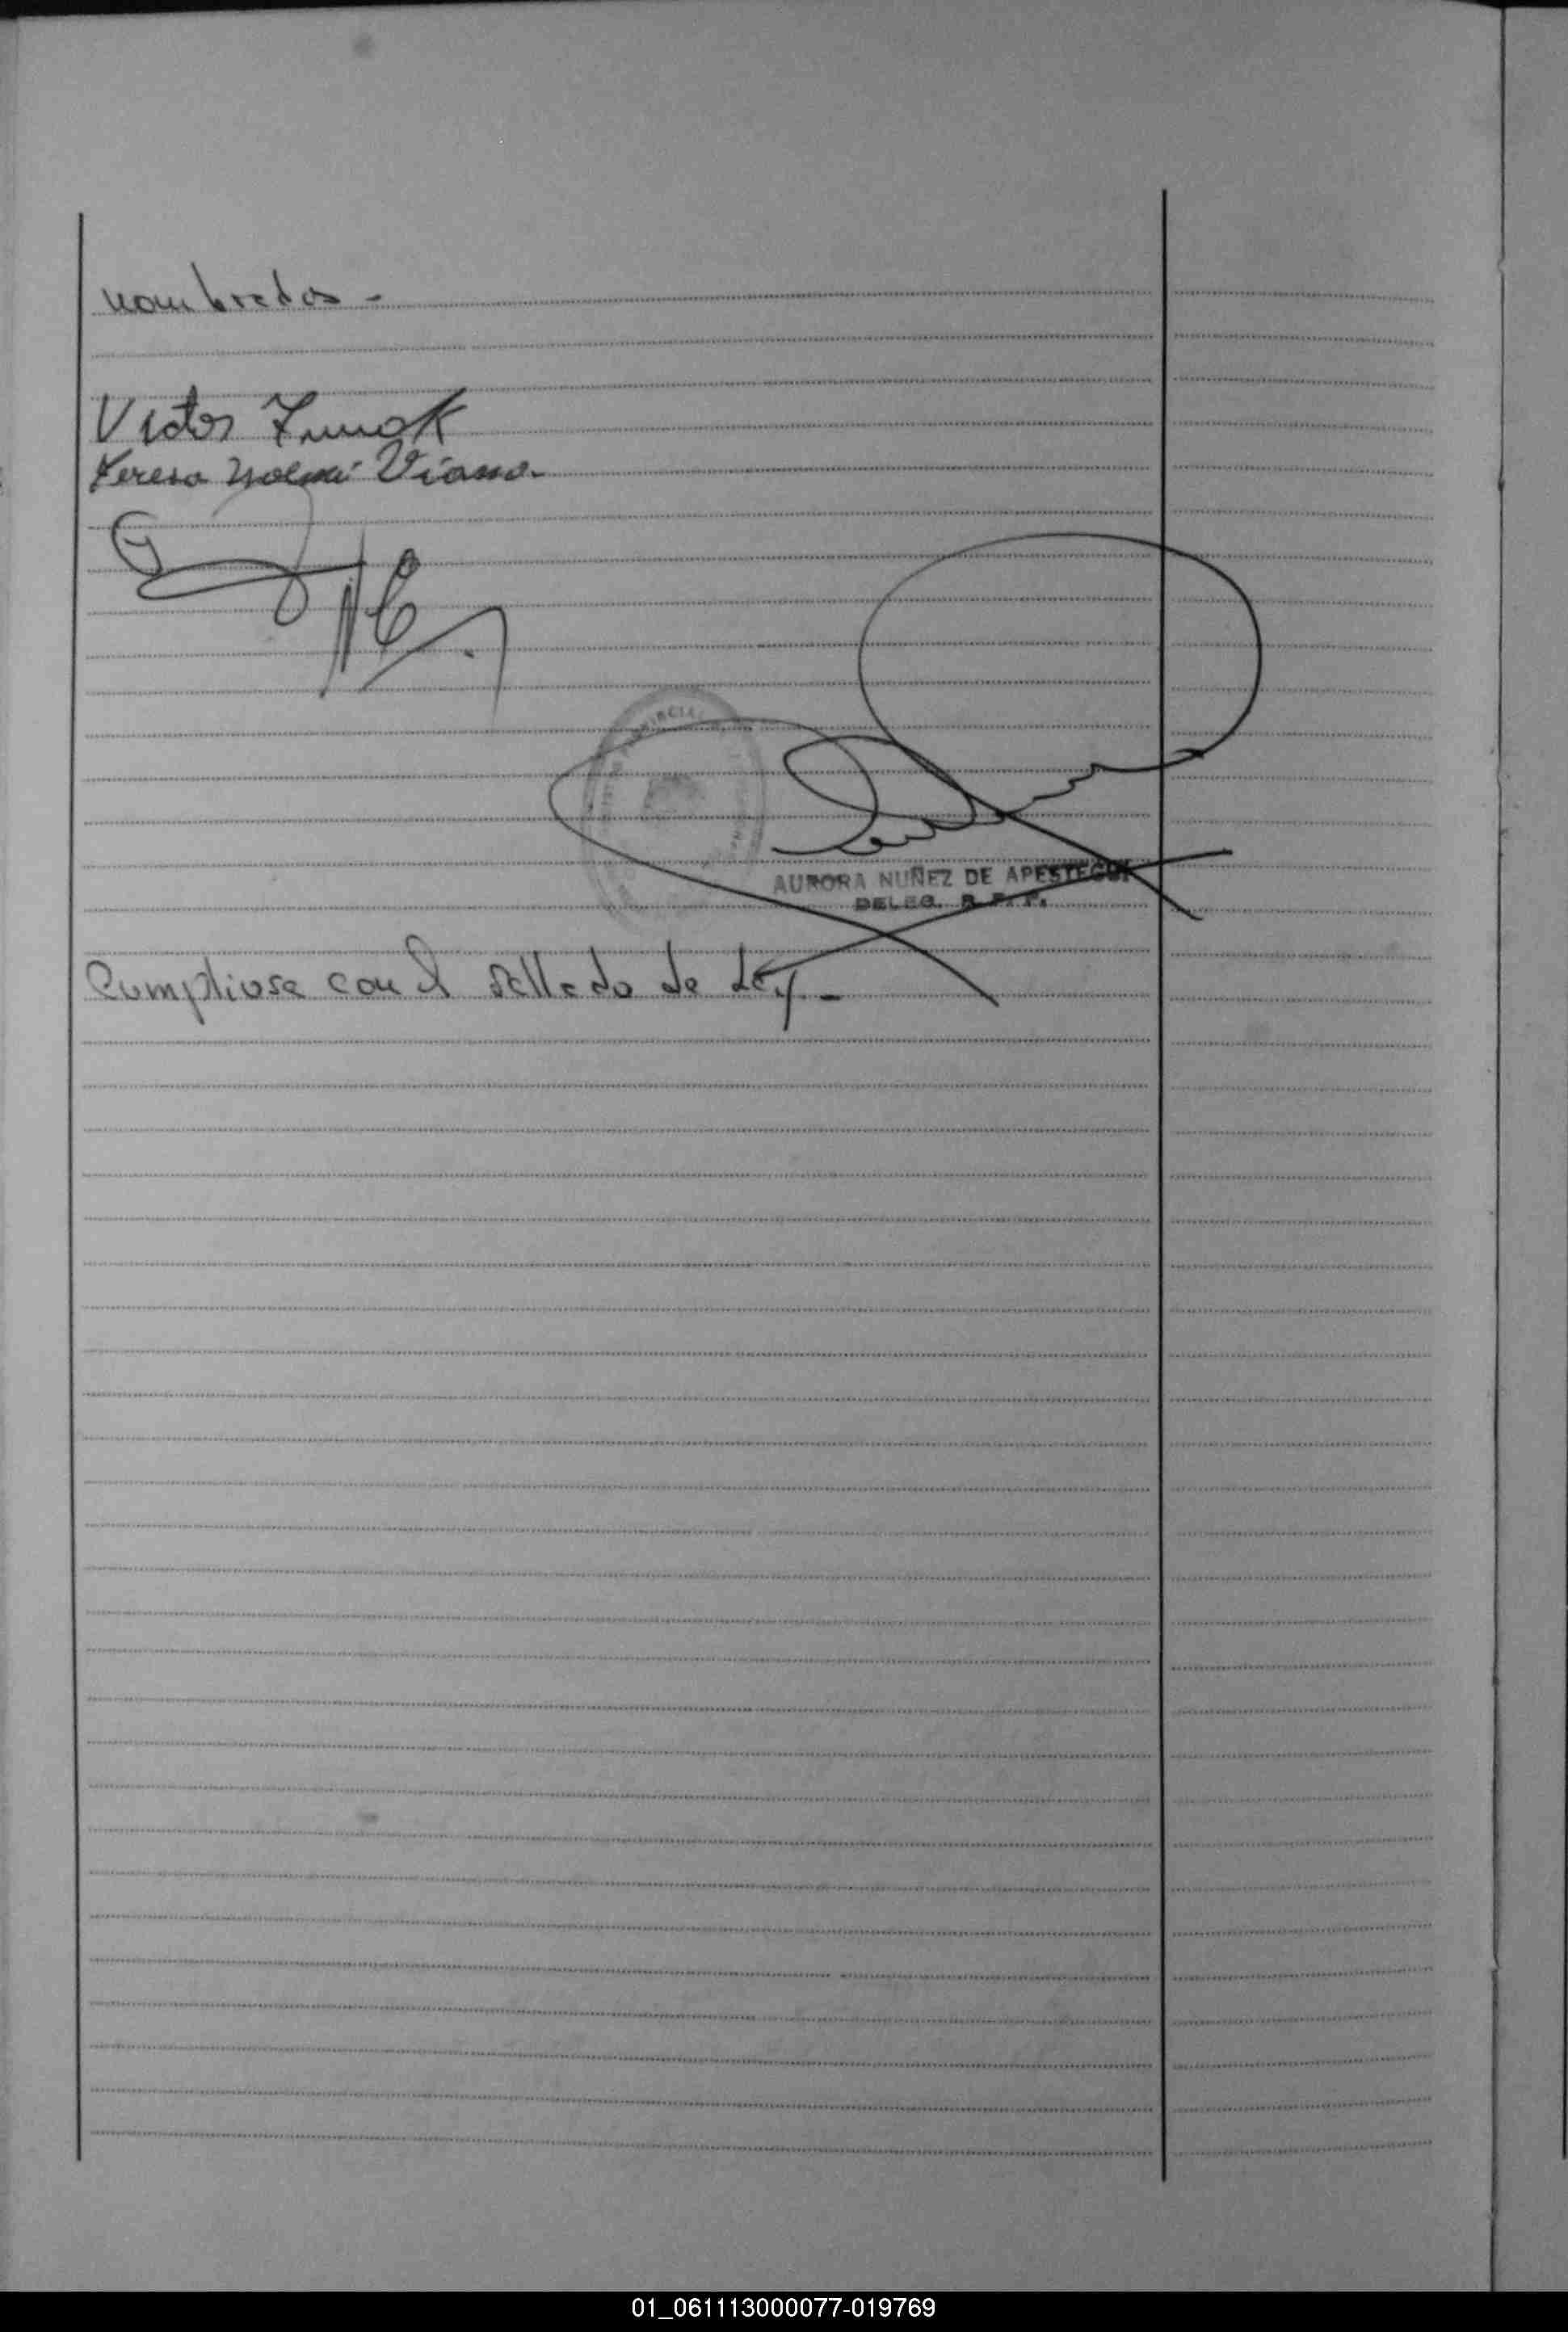 nombrados -
Victor
Teresa Noemí Viana
AURORA NUÑEZ DE APESTEGUI
DELEG. R. P. P.
Cumpliose con el sellado de Ley -
01_061113000077-019769